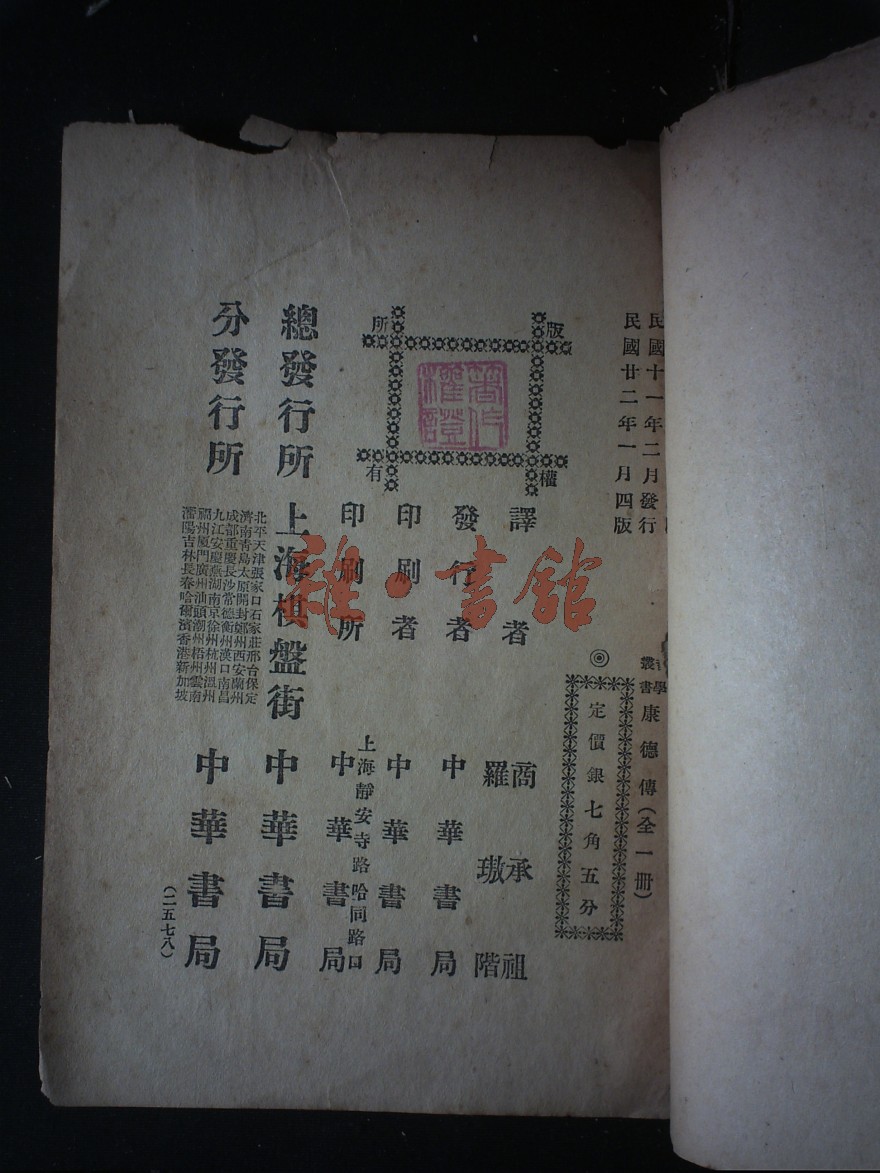 民國十一年二月發行
民國廿二年一月四版
叢書
學
康德傳(全一冊)
◎
定價銀七角五分
版權所有
著作權證
譯者
商承祖
羅璈階
發行者 中華書局
印刷者 中華書局
印刷所
上海靜安寺路哈同路口
中華書局
總發行所 上海棋盤街 中華書局
分發行所
北平天津張家口石家莊邢台保定
濟南青島太原開封鄭州西安蘭州
成都重慶長沙常德衡州漢口南昌
九江安慶蕪湖南京徐州杭州溫州
福州廈門廣州汕頭潮州梧州雲南
瀋陽吉林長春哈爾濱香港新加坡
中華書局
(二五七八)
雜·書館